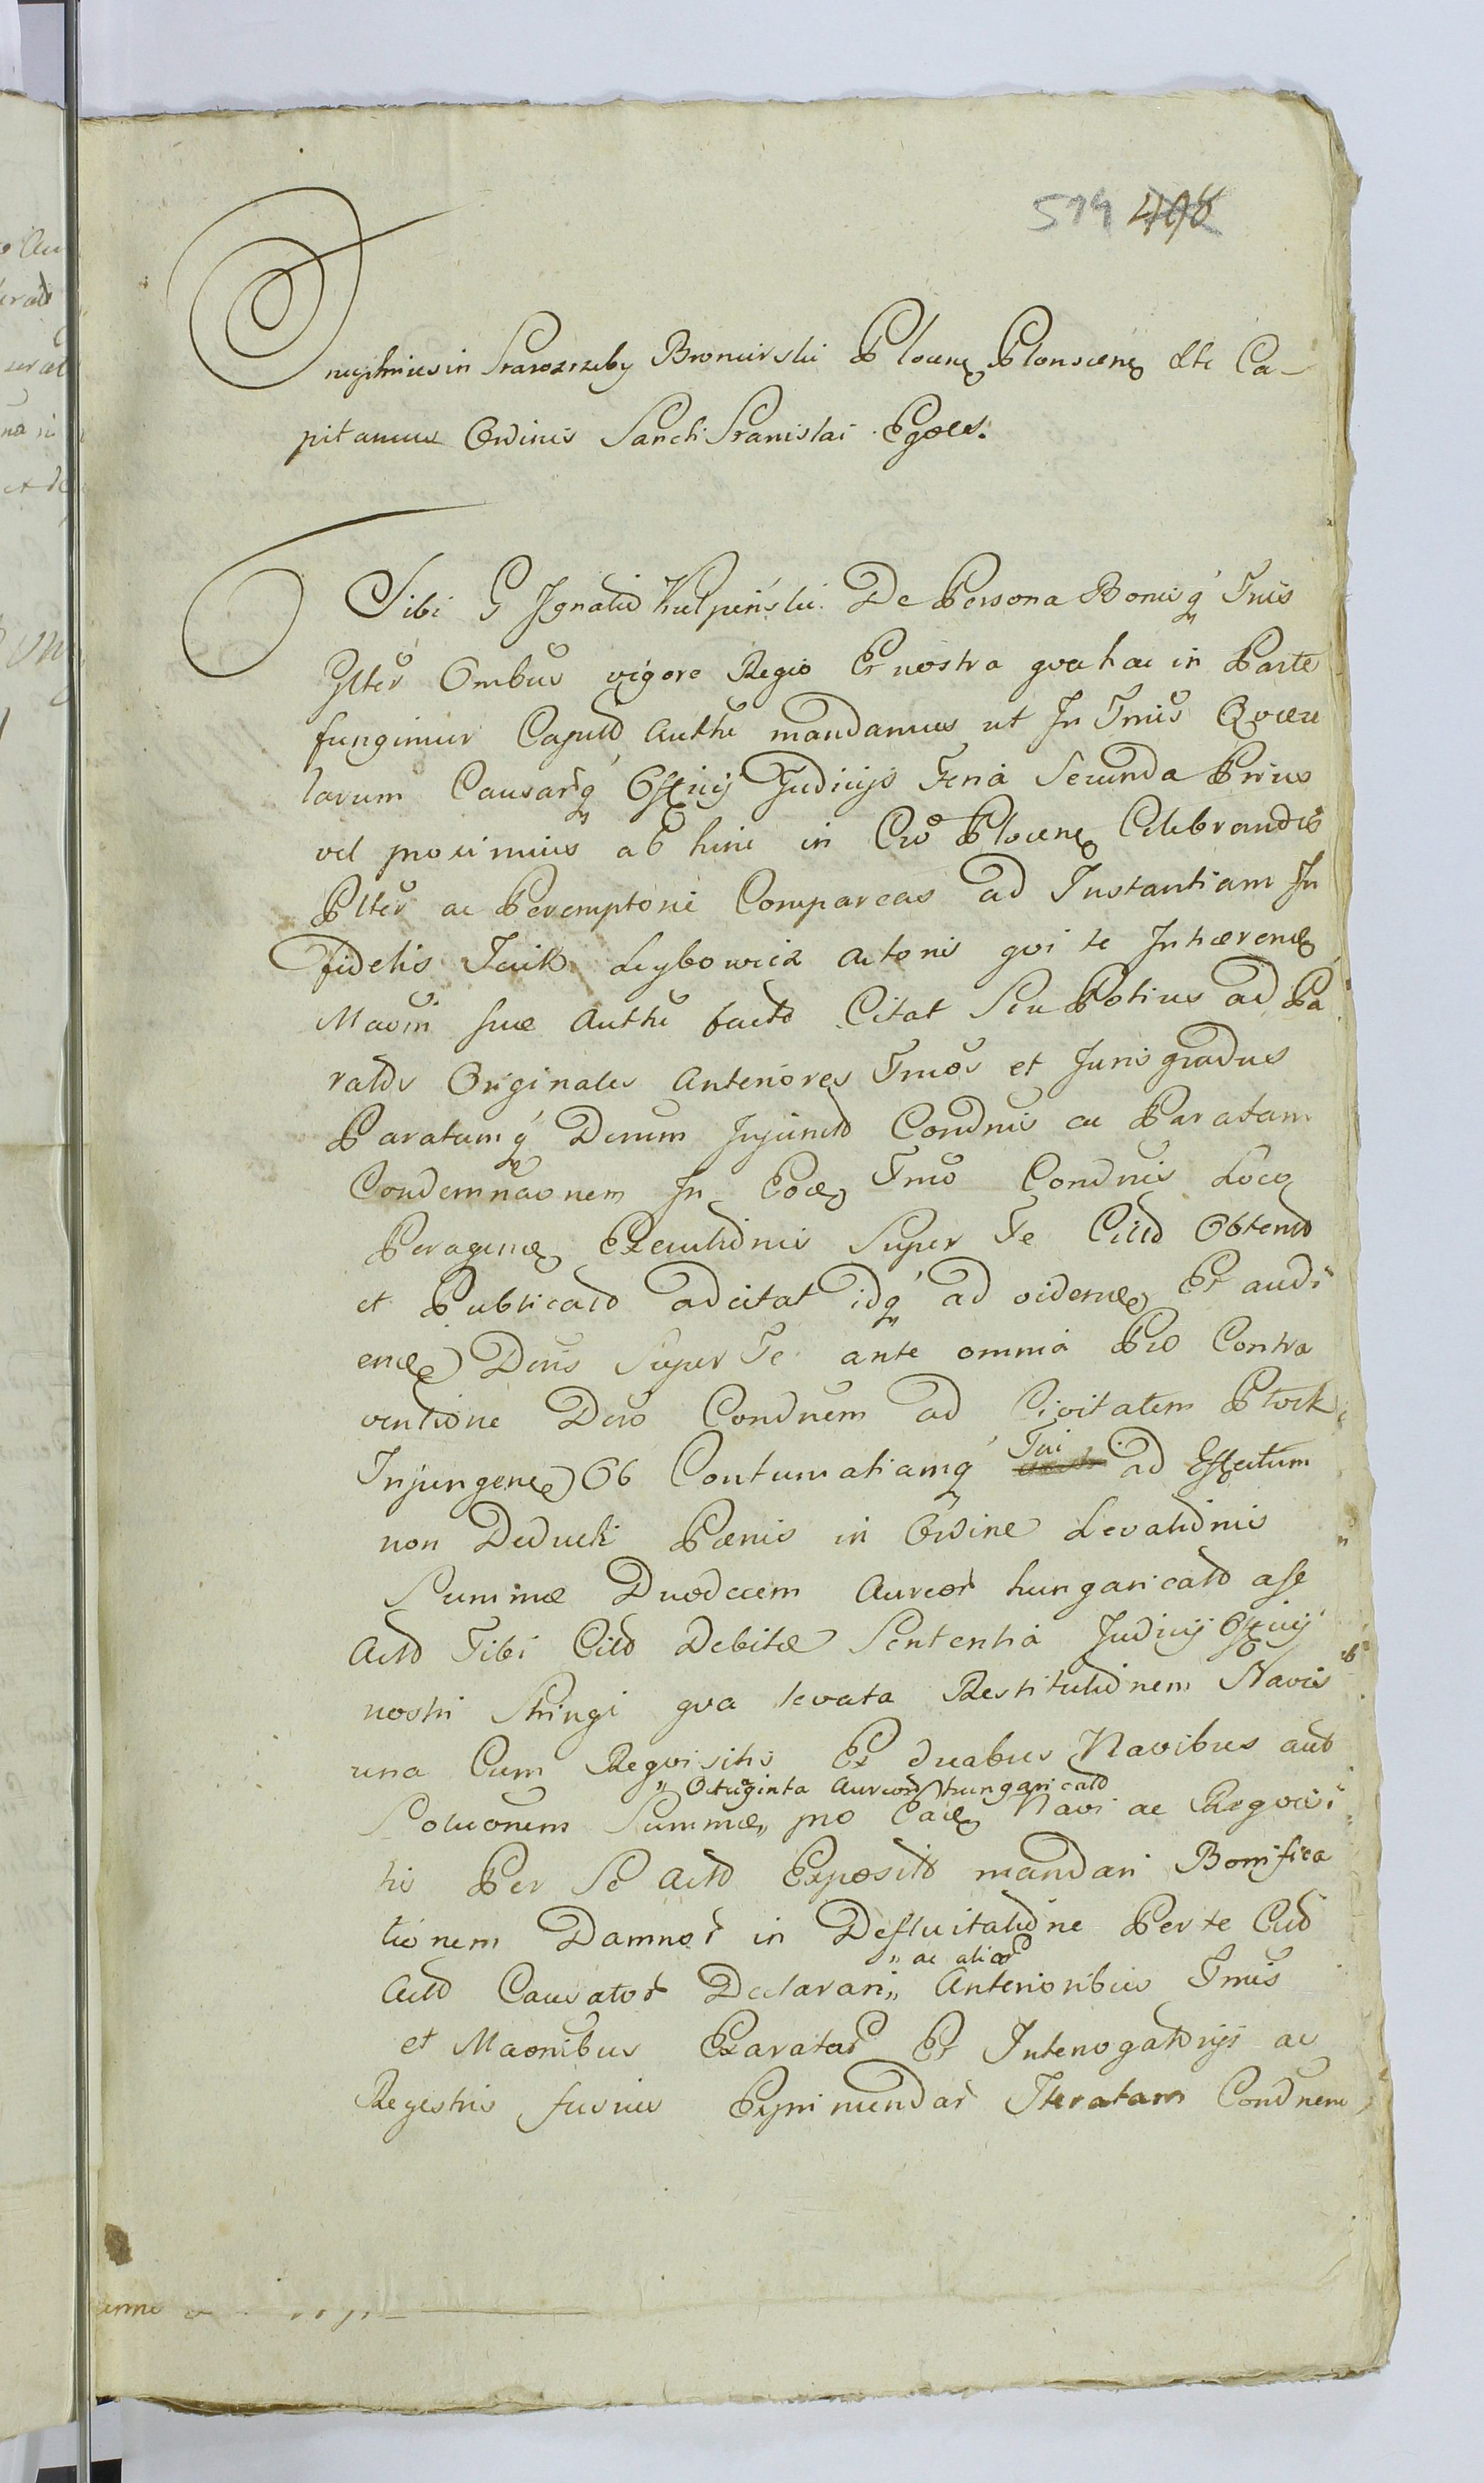 519 498
Onuphrius in Starozreby Bromirski Plocens Plonscens &tc Ca-
pitaneus Ordinis Sancti Stanislai Eques.
Tibi G Ignatio Kulpiński De Persona Bonisq Tuis
Glter Onibus vigore Regio Et nostra qva hac in Parte
fungimur Capnli Autthe mandamus ut In Tmis Qvere
larum Causarq Officij Judicijs Feria Secunda Prius
vel proximius ab hinc in Cro Plocens Celebrandis
Plter ac Peremptorie Compareas ad Instantiam In
fidelis Leybowicz Actoris qvi te Inhærend
Maoni suæ Autthe facto Citat Seu Potius ad Pa
ratos Originales Anteriores Tmos et Juris gradus
Paratamq Derum Injuncto Condnis ac Paratam
Condemnaonem In Eod Tmo Condnis Loco
Peragend Execuonis Super Te Cito Obtento
et Publicato adcitat idq ad vidend Et audi
end Deris Super Te ante omnia Pro Contra
ventione Dero Condnem ad Civitatem Płock
Injungend Ob Contumatiamq Tui ad Effectum
non Deducti Pænis in Ordine Levationis
Summæ Duodecem Aureor hungaricalo a se
Acto Tibi Cito Debitæ Sententia Judicij Officij
nostri Stringi qva levata Restitutionem Navis
una Cum Reqvisitis Ex duabus Navibus aut
" Octuginta Aureor hungaricalo
Soluonem Summæ " pro Ead Navi ac Reqvisi
tis Per Se Acto Exposito mandari Bonifica
tionem Damnor in Defluitatione Per te Cito
" ac alior
Acto Causator Declarari " Anterioribus Tmis
et Maonibus Exaratar Et Interrogatorijs ac
Registris fusius Exprimendar Iteratam Condnem